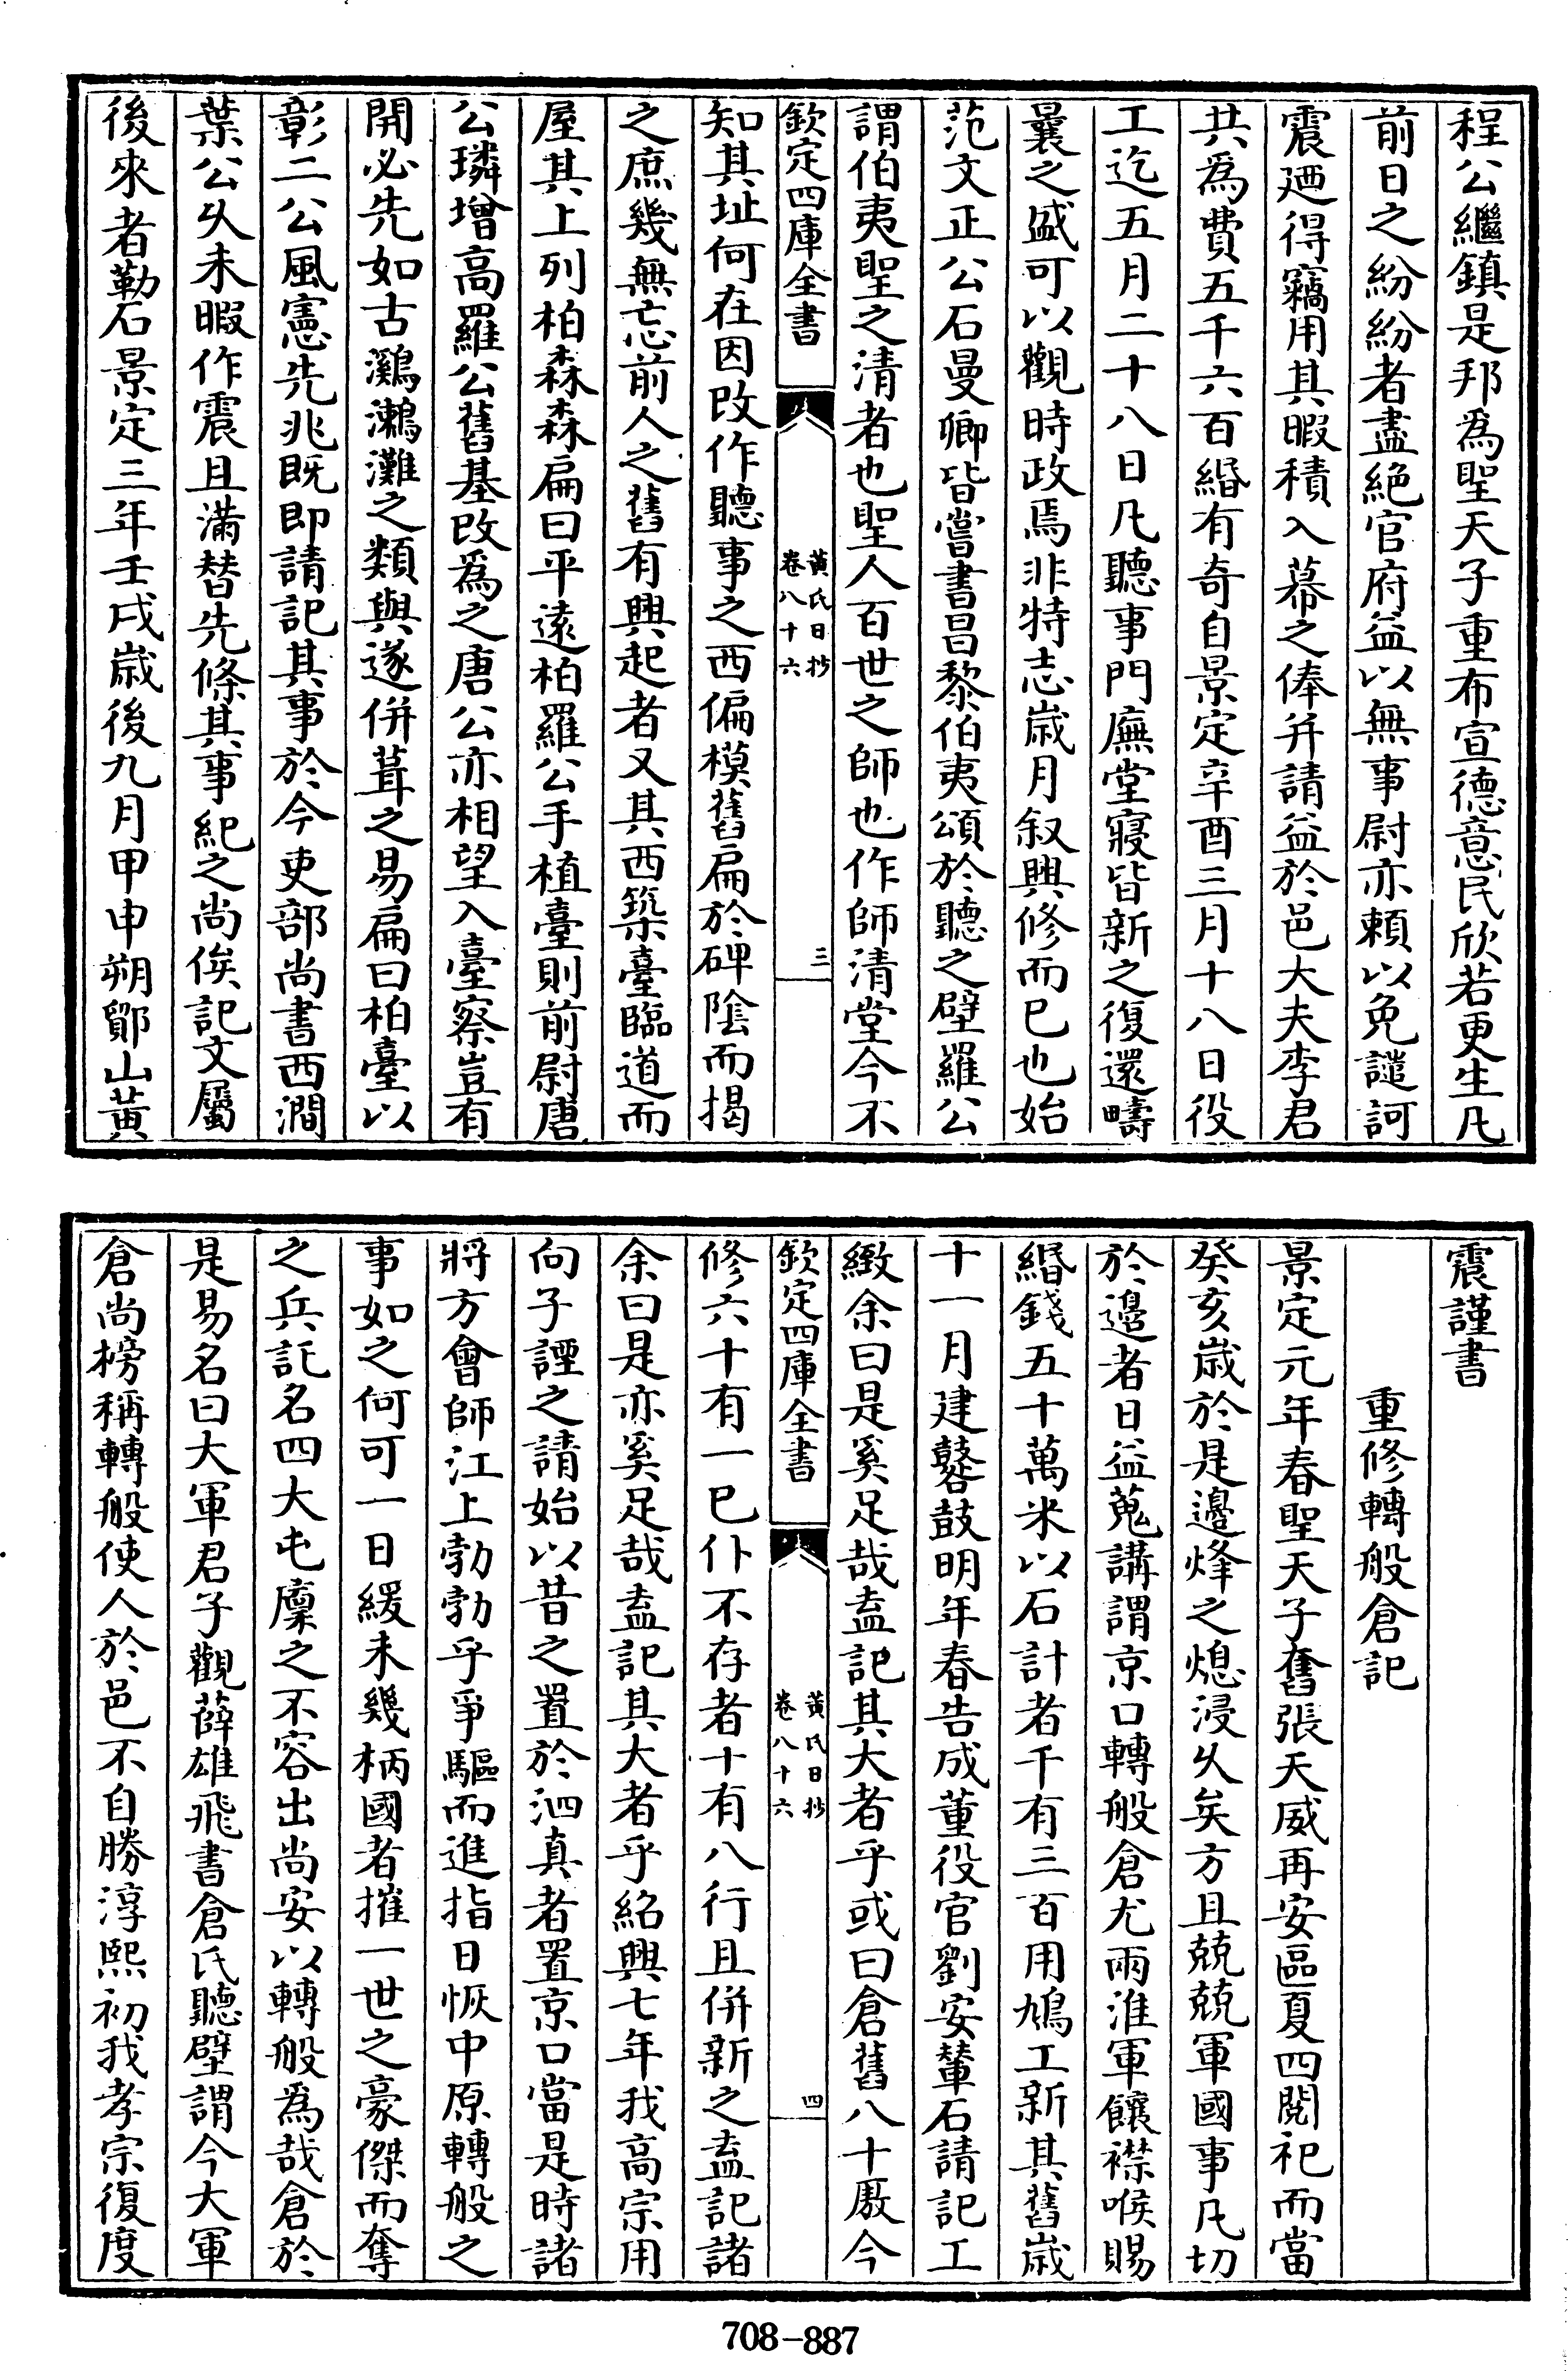 程公繼鎮是邦為聖天子重布宣德意民欣若更生凡
前日之紛紛者盡絶官府益以無事尉亦頼以免譴訶
震廼得竊用其暇積入幕之俸并請益於邑大夫李君
共為費五千六百緡有奇自景定辛酉三月十八日役
工迄五月二十八日凡聽事門廡堂寢皆新之復還疇
曩之盛可以觀時政焉非特志歲月叙興修而已也始
范文正公石曼卿皆嘗書昌黎伯夷頌於聽之壁羅公
謂伯夷聖之清者也聖人百世之師也作師清堂今不
欽定四庫全書
黄氏日抄
卷八十六
三
知其址何在因改作聽事之西偏模舊扁於碑隂而揭
之庶幾無忘前人之舊有興起者又其西築臺臨道而
屋其上列柏森森扁曰平遠柏羅公手植臺則前尉唐
公璘增高羅公舊基改為之唐公亦相望入臺察豈有
開必先如古鸂鷘灘之類與遂併葺之易扁曰柏臺以
彰二公風憲先兆既即請記其事於今吏部尚書西澗
葉公乆未暇作震且滿替先條其事紀之尚俟記文屬
後來者勒石景定三年壬戌歲後九月甲申朔鄮山黄
震謹書
重修轉般倉記
景定元年春聖天子奮張天威再安區夏四閱祀而當
癸亥歲於是邊烽之熄浸乆矣方且兢兢軍國事凡切
於邊者日益蒐講謂京口轉般倉尤兩淮軍饟襟喉賜
緡錢五十萬米以石計者千有三百用鳩工新其舊歲
十一月建鼛鼓明年春告成董役官劉安輦石請記工
緻余曰是奚足哉盍記其大者乎或曰倉舊八十厫今
欽定四庫全書
黄氏日抄
卷八十六
四
修六十有一已仆不存者十有八行且併新之盍記諸
余曰是亦奚足哉盍記其大者乎紹興七年我高宗用
向子諲之請始以昔之置於泗真者置京口當是時諸
將方會師江上勃勃乎爭驅而進指日恢中原轉般之
事如之何可一日緩未幾柄國者摧一世之豪傑而奪
之兵託名四大屯廩之不容出尚安以轉般為哉倉於
是易名曰大軍君子觀薛雄飛書倉氏聽壁謂今大軍
倉尚榜稱轉般使人於邑不自勝淳熙初我孝宗復度
708-887